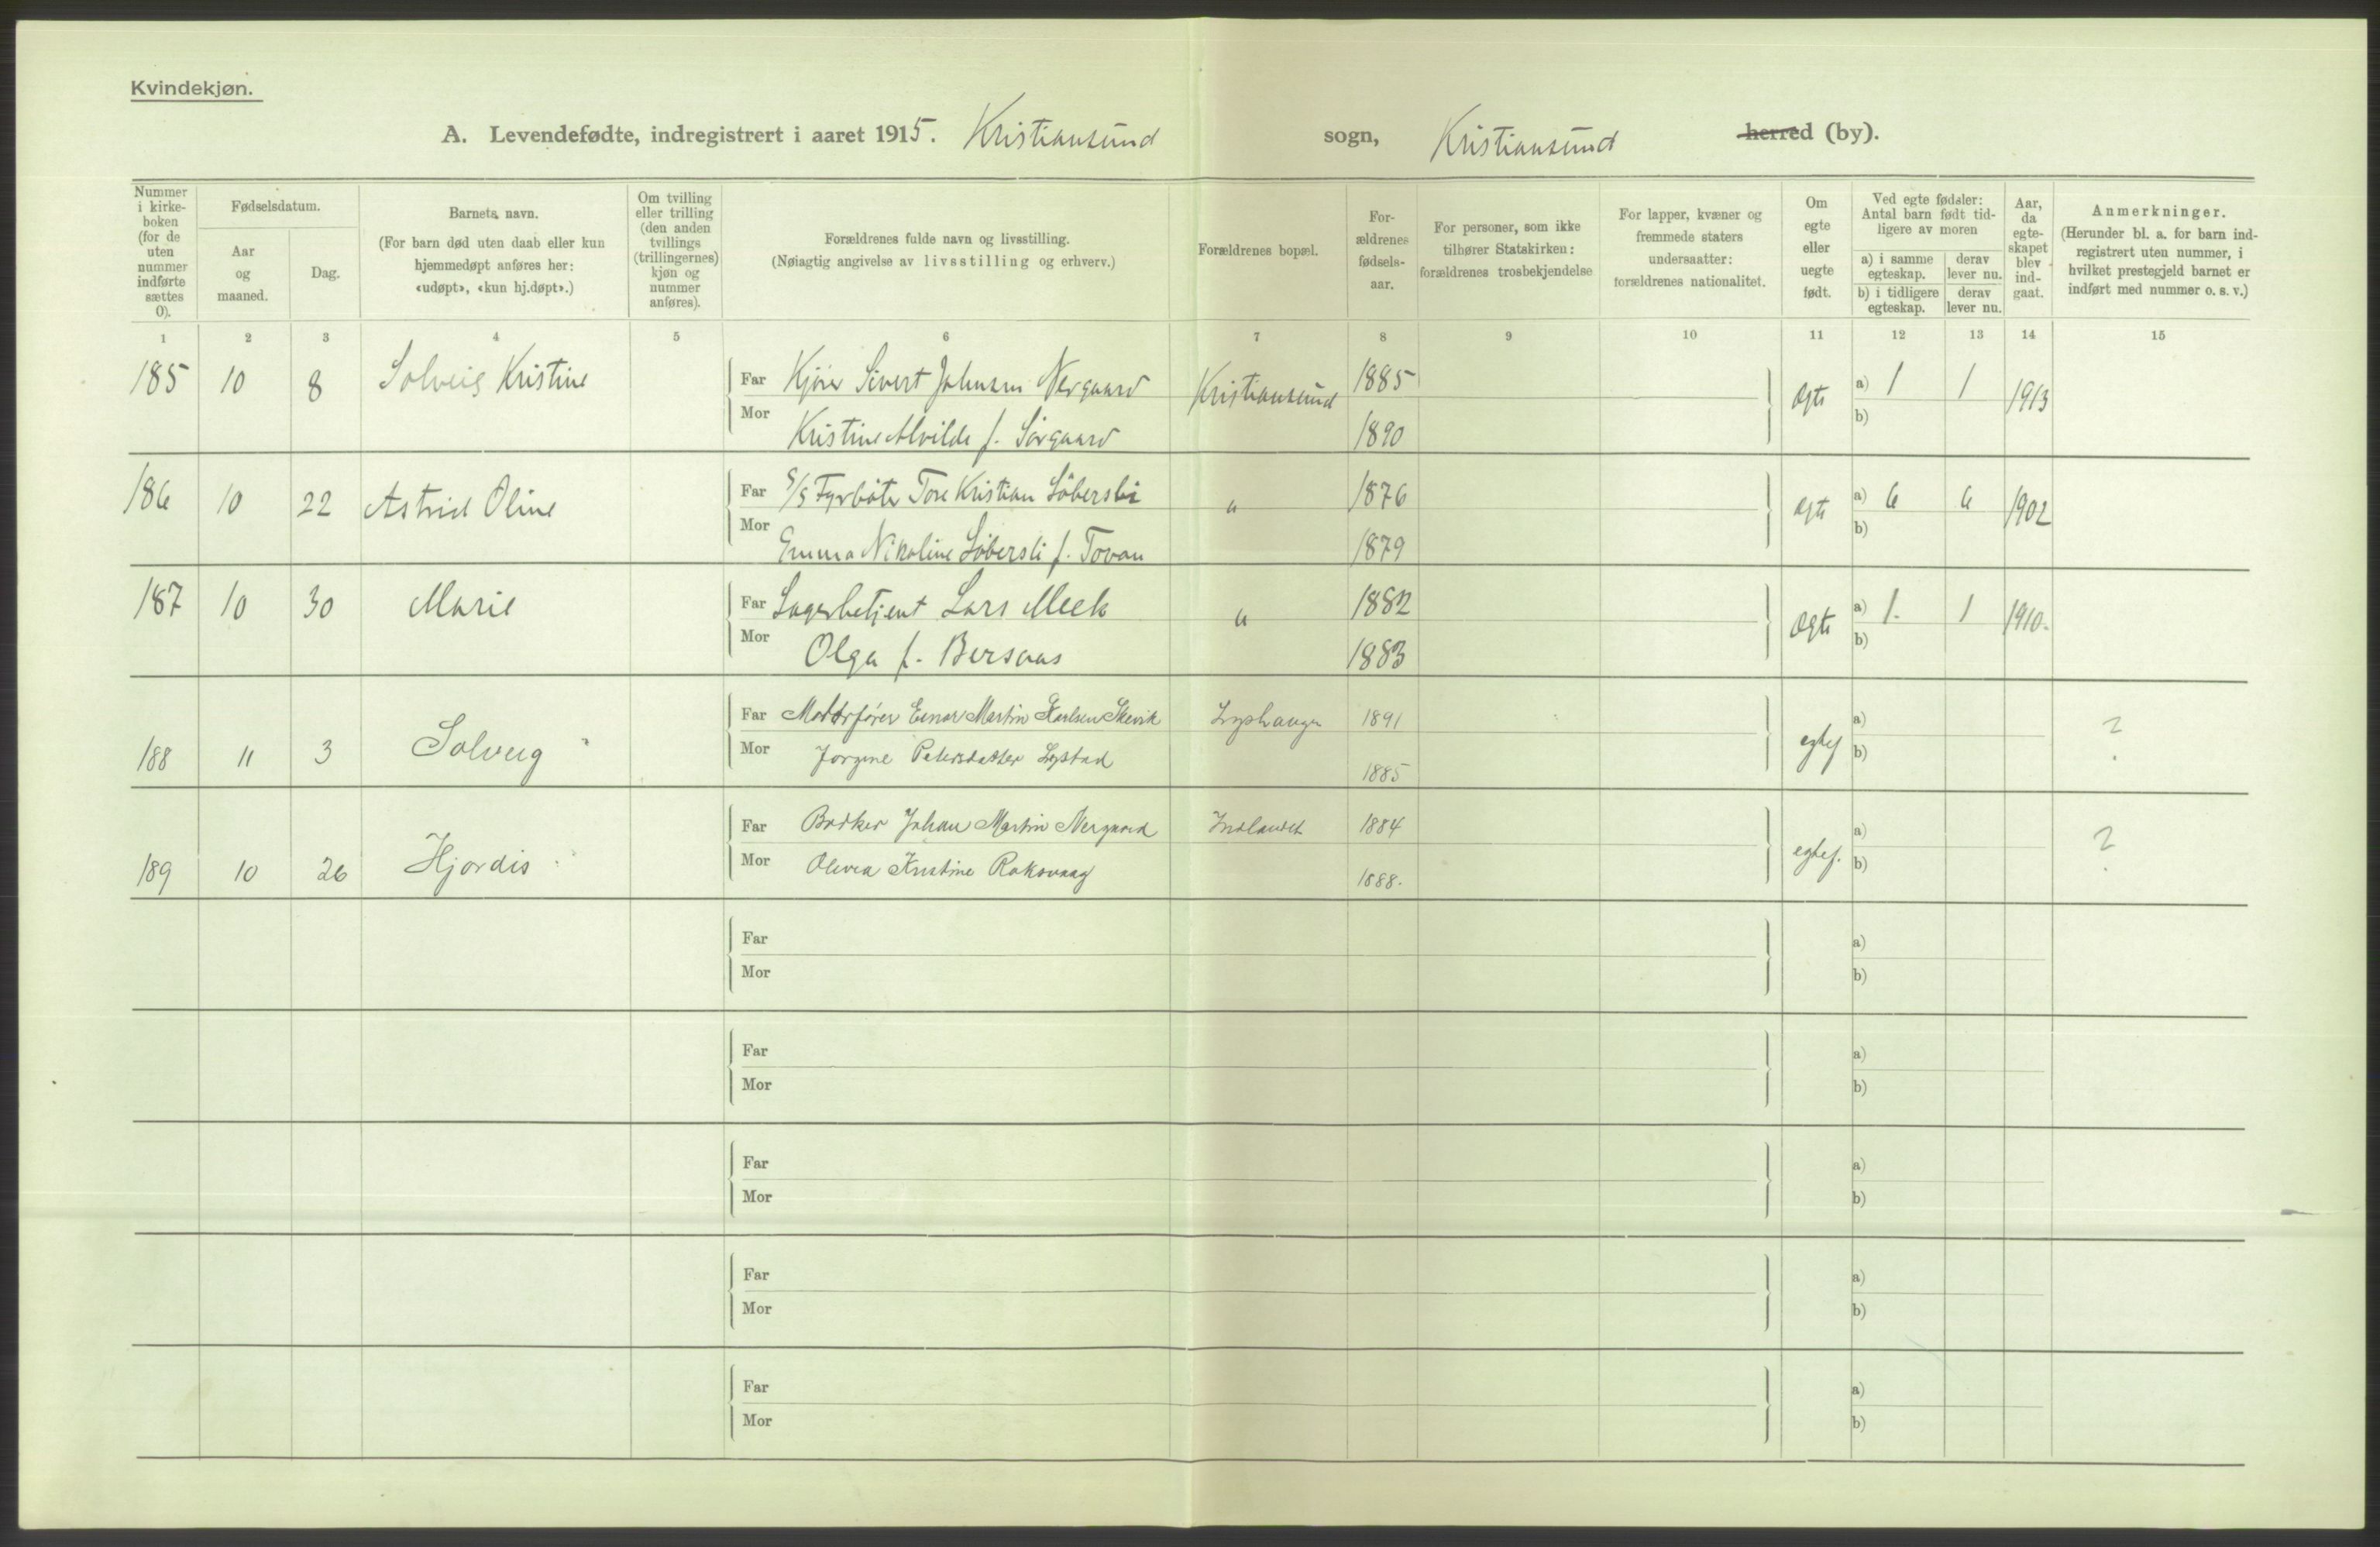 Kvindekjøn.
A. Levendefødte, indregistrert i aaret 1915. Kristiansund sogn, Kristiansund herred (by).
Nummer i kirkeboken (for de uten nummer indførte sættes 0).
Fødselsdatum.
Aar og maaned.
Dag.
Barnets navn.
(For barn død uten daab eller kun hjemmedøpt anføres her: «udøpt», «kun hj.døpt».)
Om tvilling eller trilling (den anden tvillings (trillingernes) kjøn og nummer anføres).
Forældrenes fulde navn og livsstilling.
(Nøiagtig angivelse av livsstilling og erhverv.)
Forældrenes bopæl.
Forældrenes fødselsaar.
For personer, som ikke tilhører Statskirken: forældrenes trosbekjendelse
For lapper, kvæner og fremmede staters undersaatter: forældrenes nationalitet.
Om egte eller uegte født.
Ved egte fødsler: Antal barn født tidligere av moren
a) i samme egteskap. derav lever nu.
b) i tidligere egteskap. derav lever nu.
Aar, da egteskapet blev indgaat.
Anmerkninger.
(Herunder bl. a. for barn indregistrert uten nummer, i hvilket prestegjeld barnet er indført med nummer o. s. v.)
1 2 3 4 5 6 7 8 9 10 11 12 13 14 15
185 10 8 Solveig Kristine Far Sivert Johnsen Nergaard Kristiansund 1885 Ægte a) 1 1 1913
Mor Kristine Alvilde f. Sørgaard 1890 b)
186 10 22 Astrid Oline Far S/S Fyrbøter Tore Kristian Løbersli " 1876 Ægte a) 6 6 1902
Mor Emma Nikoline Løbersli f. Tovan 1879 b)
187 10 30 Marie Far Lagerbetjent Lars Meek " 1882 Ægte a) 1. 1 1910.
Mor Olga f. Bersaas 1883 b)
188 11 3 Solveig Far Motorfører Einar Martin Karlsen Skevik 1891 a) ?
Mor Jorgine Petersdatter Lystad 1885 b)
189 10 26 Hjordis Far Bødker Johan Martin Nergaard Indlandet 1884 a) ?
Mor Olivia Kristine Roksvaag 1888. b)
Far a)
Mor b)
Far a)
Mor b)
Far a)
Mor b)
Far a)
Mor b)
Far a)
Mor b)